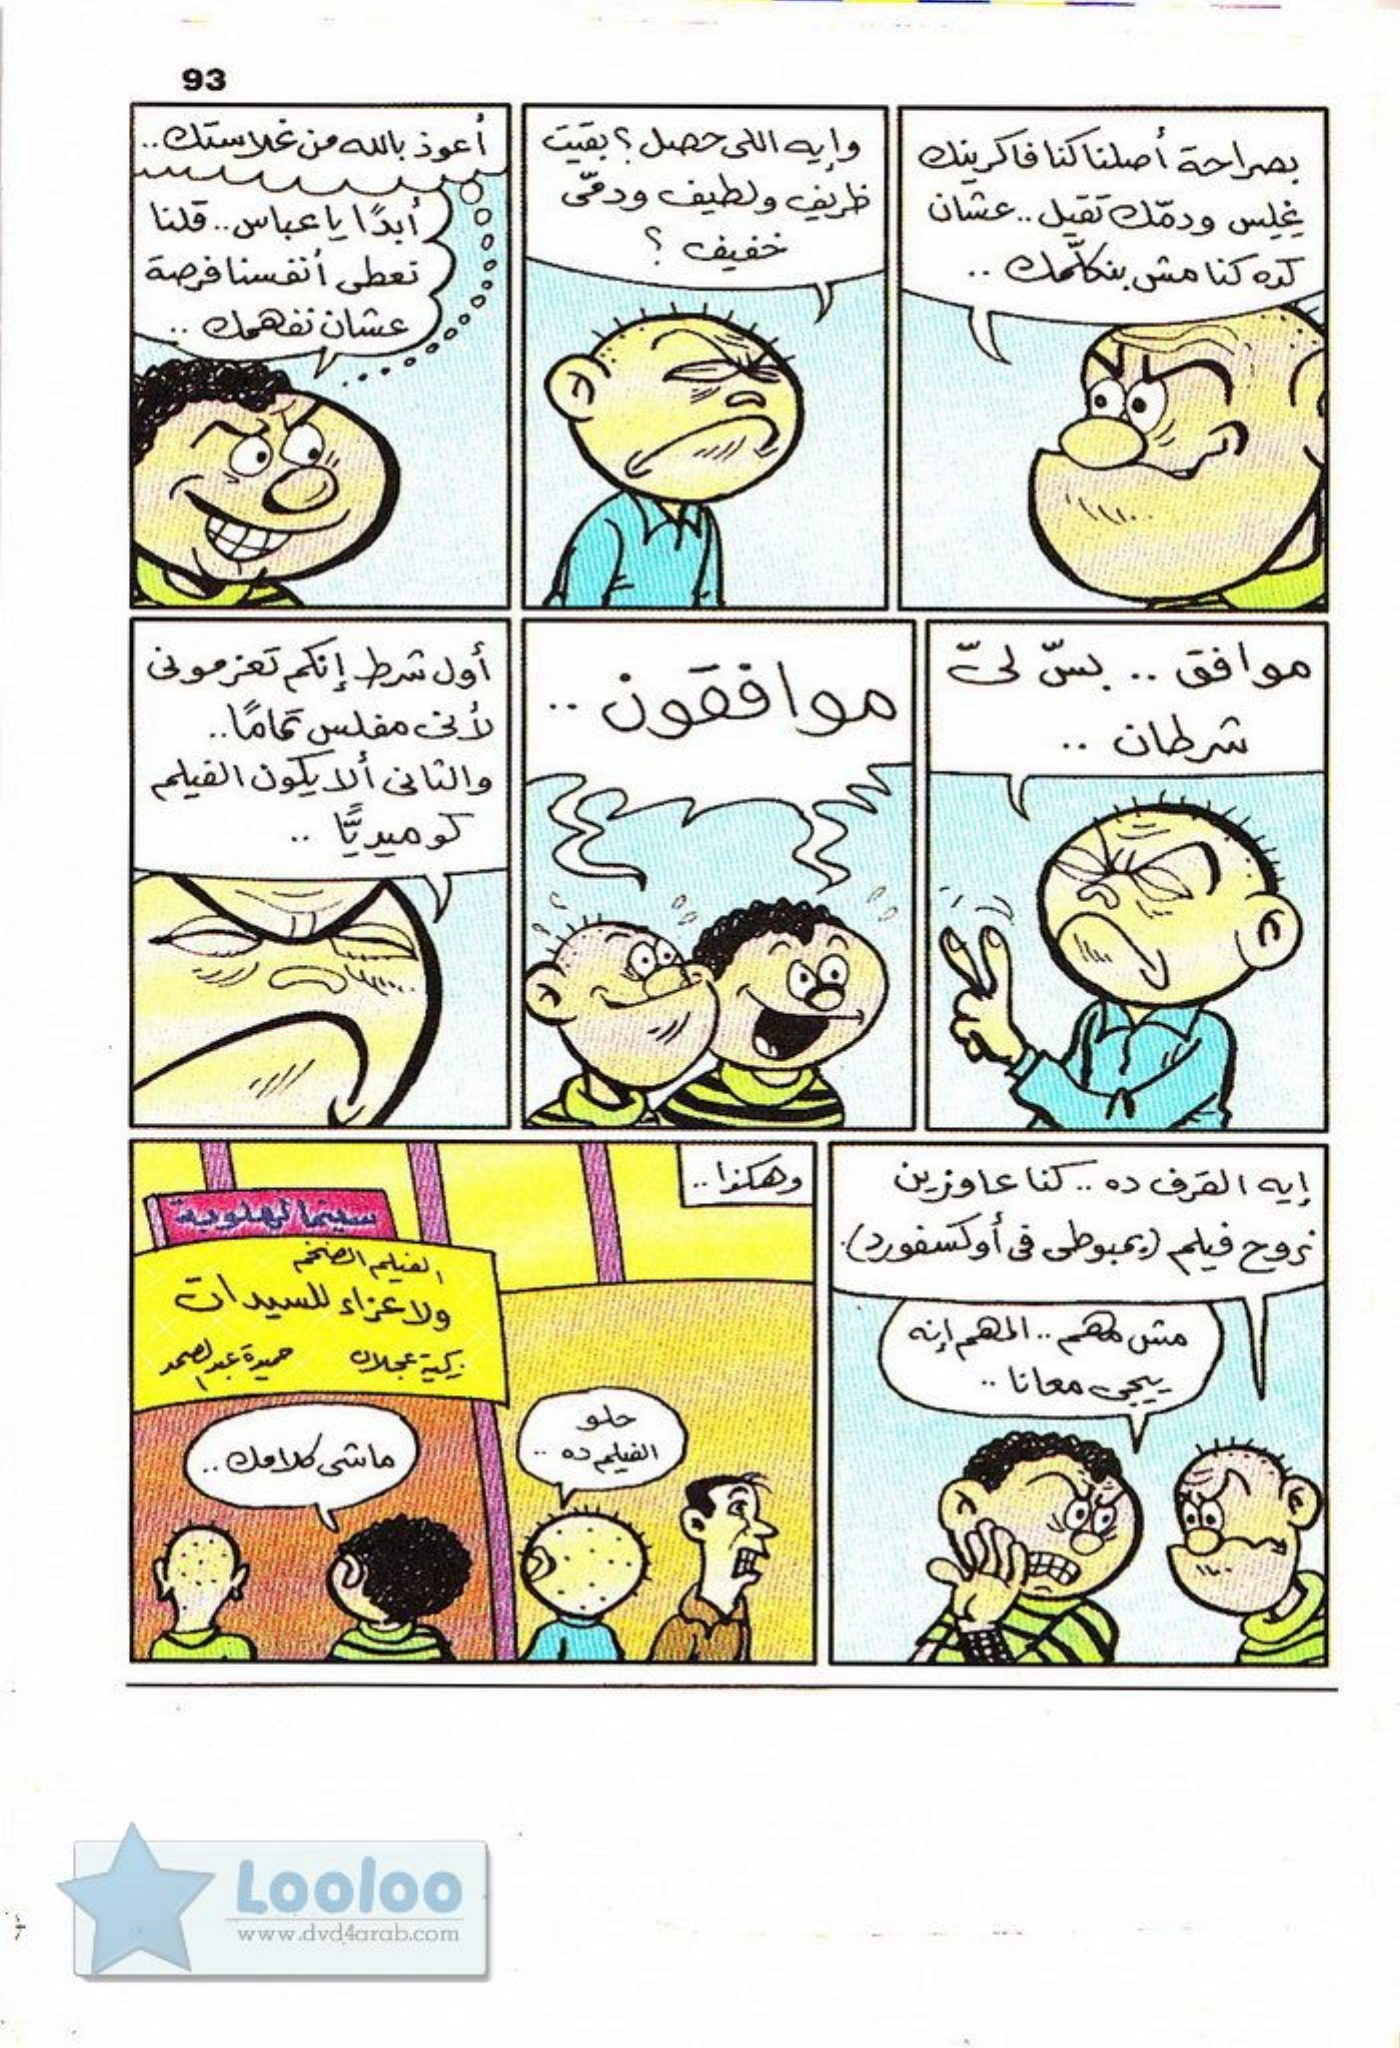 93
بصراحة أصلنا كنا فاكرينك
غِلِس ودمّك تقيل.. عشان
كده كنا مش بنكلّمك ..
وإيه اللى حصل؟ بقيت
ظريف ولطيف ودمّى
خفيف ؟
أعوذ بالله من غلاستك..
أبدًا يا عباس.. قلنا
نعطى أنفسنا فرصة
عشان نفهمك ..
موافق .. بسّ لىّ
شرطان ..
موافقون ..
أول شرط إنكم تعزمونى
لأنى مفلس تمامًا..
والثانى ألا يكون الفيلم
كوميديًّا ..
إيه القرف ده .. كنا عاوزين
نروح فيلم (بمبوطى فى أوكسفورد).
مش مهم .. المهم إنه
ييجى معانا ..
وهكذا..
سينما لهلوبة
الفيلم الضخم
ولا عزاء للسيدات
زكية عجلان حميدة عبد الصمد
حلو
الفيلم ده ..
ماشى كلامك ..
Looloo
www.dvd4arab.com